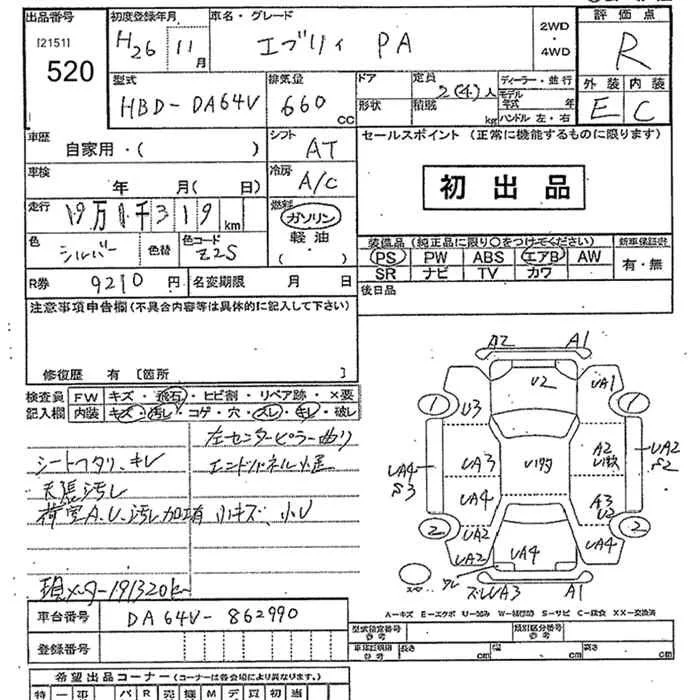 出品番号
[2151]
520
初度登録年月
H26 11月
車名・グレード
エブリィ PA
2WD
・
4WD
評価点
R
型式
HBD-DA64V
排気量
660 CC
ドア
形状
定員
2(4)人
積載
kg
ディーラー・並行
モデル
年式 年
ハンドル 左・右
外装 内装
E C
車歴
自家用・( )
シフト
AT
セールスポイント (正常に機能するものに限ります)
初出品
車検
年 月( 日)
冷房
A/C
走行
19万1千319km
燃料
ガソリン
軽油
・( )
色
シルバー
色替
色コード
Z2S
装備品 (純正品に限り〇をつけてください)
新車保証書
PS PW ABS エアB AW
SR ナビ TV カワ
有・無
R券
9210円
名変期限 月 日
後日品
注意事項申告欄(不具合内容等は具体的に記入して下さい)
修復歴 有 [箇所 ]
検査員 FW キズ・飛石・ヒビ割・リペア跡・×要
記入欄 内装 キズ・汚レ・コゲ・穴・スレ・キレ・破レ
左センターピラー曲り
シートヘタリ、キレ
天張汚レ
荷室A.U.汚レ加工有 小キズ、小U
現メーター191320km
A2 A1
U2
UA1
1 U3 1
UA3 A2
UA4
S3
UA2
S2
UA4 A3
U2
2 UA2 2
UA2 UA4 UA4
UA3 A1
A-キズ E-エクボ U-凹み W-補修跡 S-サビ C-腐食 XX-交換済
車台番号
DA64V-862990
登録番号
型式指定番号
参考
類別区分番号
参考
参考
長さ cm 幅 cm 高さ cm
希望出品コーナー (コーナーは各会場により異なります。)